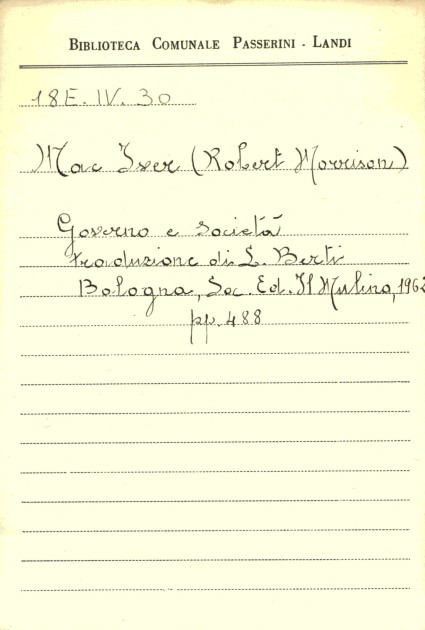 BIBLIOTECA COMUNALE PASSERINI - LANDI
18E. IV. 30
Mac Iver (Robert Morrison)
Governo e società
traduzione di L. Berti
Bologna, Soc. Ed. Il Mulino, 1962
pp. 488